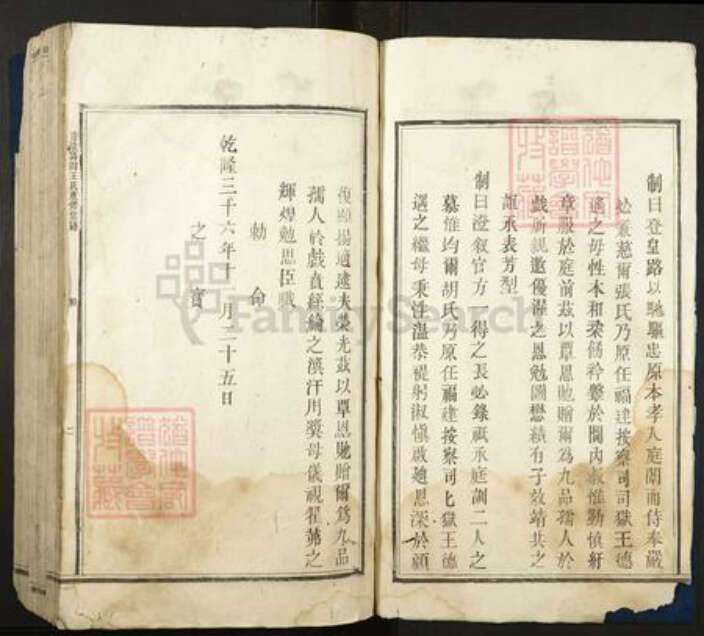 制曰登皇路以馳驅忠原本孝入庭闈而侍奉嚴
必兼慈爾張氏乃原任福建按察司司獄王德
遙之母性本和柔飭衿鞶於閫內教惟勤慎紆
章服於庭前茲以覃恩貤贈爾為九品孺人於
戲所親邀優渥之恩勉圖懋績有子效靖共之
誼承表芳型
制曰澄叙官方一得之長必錄祇承庭訓二人之
慕惟均爾胡氏乃原任福建按察司匕獄王德
遙之繼母秉性溫恭禔躬淑慎啟廸恩深於顧
復顯揚遹逮夫榮光茲以覃恩貤贈爾為九品
孺人於戲貢絲綸之渙汗用獎母儀視翟茀之
輝煌勉思臣職
勅命
乾隆三十六年十一月二十五日
之寶
FamilySearch